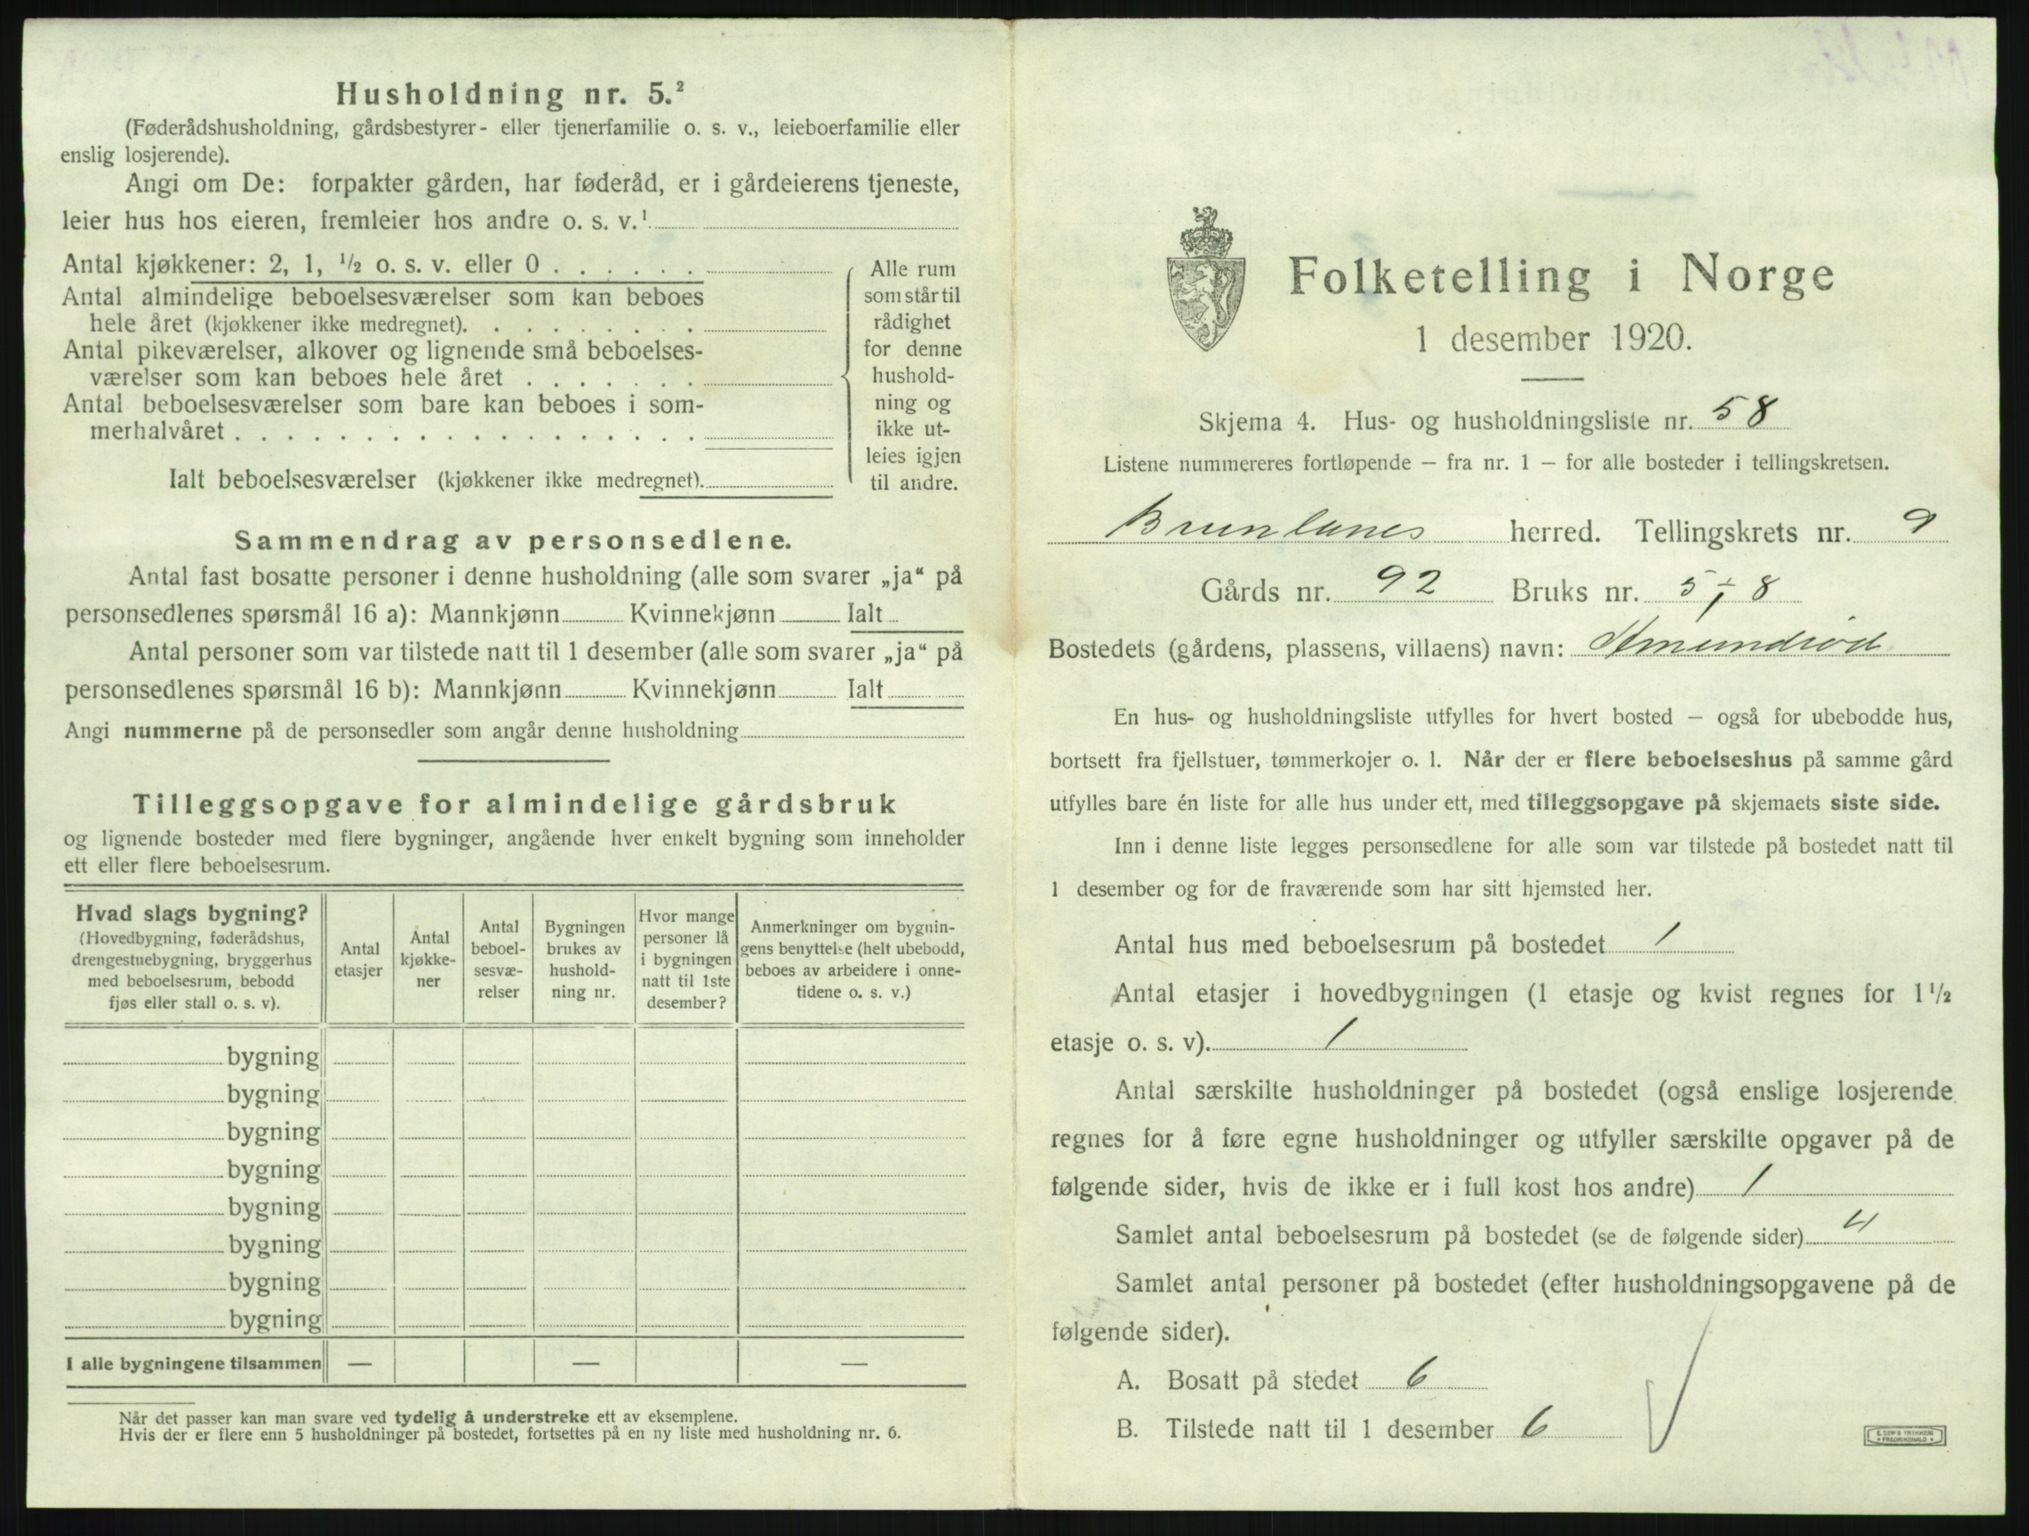 Husholdning nr. 5.²
(Føderådshusholdning, gårdsbestyrer- eller tjenerfamilie o. s. v., leieboerfamilie eller
enslig losjerende).
Angi om De: forpakter gården, har føderåd, er i gårdeierens tjeneste,
leier hus hos eieren, fremleier hos andre o. s. v.¹
Antal kjøkkener: 2, 1, ¹/₂ o. s. v. eller 0 . . . . . .
Antal almindelige beboelsesværelser som kan beboes
hele året (kjøkkener ikke medregnet). . . . . . . . .
Antal pikeværelser, alkover og lignende små beboelses-
værelser som kan beboes hele året . . . . . . .
Antal beboelsesværelser som bare kan beboes i som-
merhalvåret . . . . . . . . . . . . . . . . . .
Ialt beboelsesværelser (kjøkkener ikke medregnet).
Alle rum
som står til
rådighet
for denne
hushold-
ning og
ikke ut-
leies igjen
til andre.
Sammendrag av personsedlene.
Antal fast bosatte personer i denne husholdning (alle som svarer „ja“ på
personsedlenes spørsmål 16 a): Mannkjønn Kvinnekjønn Ialt
Antal personer som var tilstede natt til 1 desember (alle som svarer „ja“ på
personsedlenes spørsmål 16 b): Mannkjønn Kvinnekjønn Ialt
Angi nummerne på de personsedler som angår denne husholdning
Tilleggsopgave for almindelige gårdsbruk
og lignende bosteder med flere bygninger, angående hver enkelt bygning som inneholder
ett eller flere beboelsesrum.
Hvad slags bygning?
(Hovedbygning, føderådshus,
drengestuebygning, bryggerhus
med beboelsesrum, bebodd
fjøs eller stall o. s. v).
Antal
etasjer
Antal
kjøkke-
ner
Antal
beboel-
sesvæ-
relser
Bygningen
brukes av
hushold-
ning nr.
Hvor mange
personer lå
i bygningen
natt til 1ste
desember?
Anmerkninger om bygnin-
gens benyttelse (helt ubebodd,
beboes av arbeidere i onne-
tidene o. s. v.)
bygning
bygning
bygning
bygning
bygning
bygning
bygning
bygning
I alle bygningene tilsammen — — —
Når det passer kan man svare ved tydelig å understreke ett av eksemplene.
Hvis der er flere enn 5 husholdninger på bostedet, fortsettes på en ny liste med husholdning nr. 6.
Folketelling i Norge
1 desember 1920.
Skjema 4. Hus- og husholdningsliste nr. 58
Listene nummereres fortløpende — fra nr. 1 — for alle bosteder i tellingskretsen.
Brunlanes herred. Tellingskrets nr. 9
Gårds nr. 92 Bruks nr. 5 + 8
Bostedets (gårdens, plassens, villaens) navn: Amundrød
En hus- og husholdningsliste utfylles for hvert bosted — også for ubebodde hus,
bortsett fra fjellstuer, tømmerkojer o. l. Når der er flere beboelseshus på samme gård
utfylles bare én liste for alle hus under ett, med tilleggsopgave på skjemaets siste side.
Inn i denne liste legges personsedlene for alle som var tilstede på bostedet natt til
1 desember og for de fraværende som har sitt hjemsted her.
Antal hus med beboelsesrum på bostedet 1
Antal etasjer i hovedbygningen (1 etasje og kvist regnes for 1¹/₂
etasje o. s. v). 1
Antal særskilte husholdninger på bostedet (også enslige losjerende
regnes for å føre egne husholdninger og utfyller særskilte opgaver på de
følgende sider, hvis de ikke er i full kost hos andre) 1
Samlet antal beboelsesrum på bostedet (se de følgende sider) 4
Samlet antal personer på bostedet (efter husholdningsopgavene på de
følgende sider).
A. Bosatt på stedet 6
B. Tilstede natt til 1 desember 6